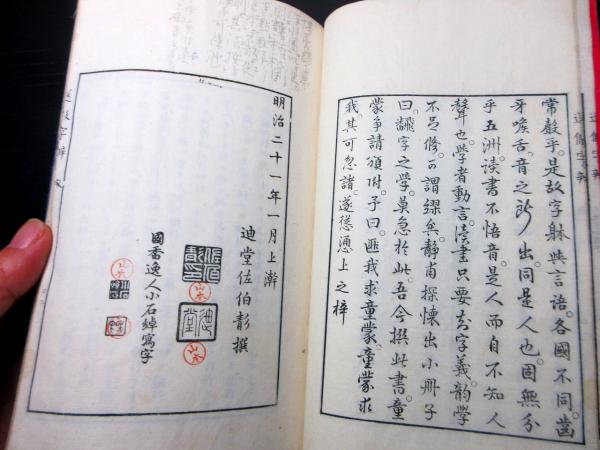 常敎乎。是故字躰與言語。各國不同。齒
牙喉舌。音之所出。同是人也。固無分
乎五洲。读書不悟音。是人而自不知人
聲也。學者動言。讀書只要知字義。韵學
不足修。可謂繆矣。靜甫探懷出小冊子
曰。飜字之學。莫急於此。吾今撰此書。童
蒙爭請頒附。予曰。匪我求童蒙。童蒙求
我。其可忽諸。遂慫慂上之梓
明治二十一年一月上澣
迪堂佐伯彰撰
國香逸人小石綽寫字
山本
山本
山本